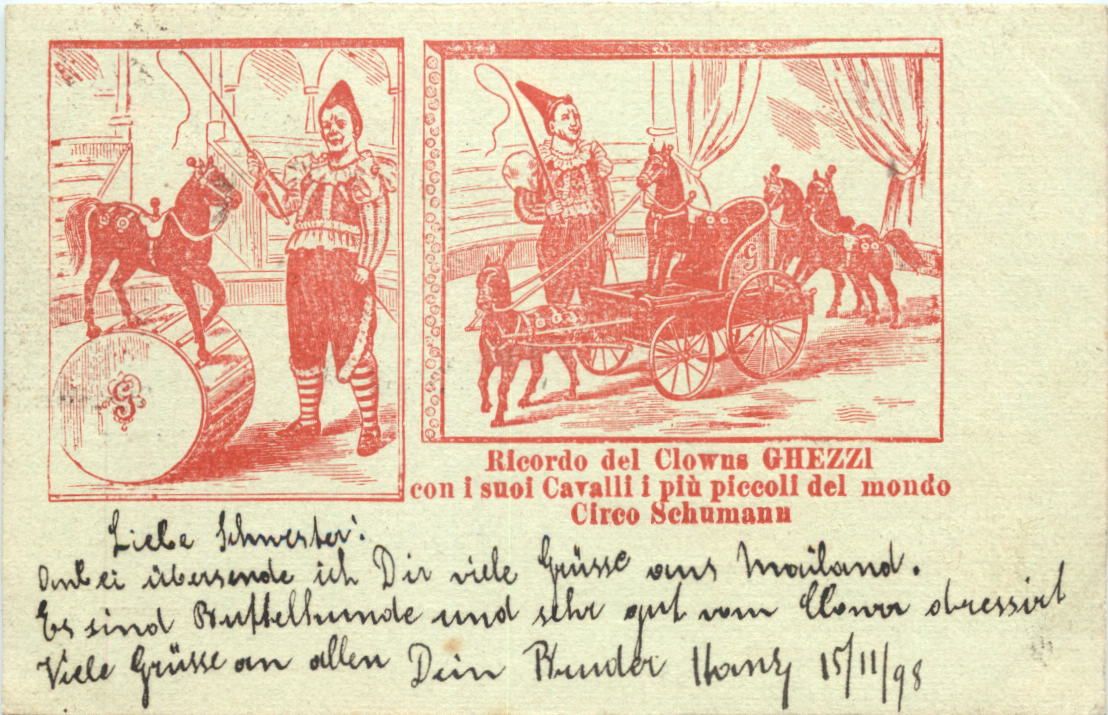 G
G
Ricordo del Clowns GHEZZI
con i suoi Cavalli i più piccoli del mondo
Circo Schumann
Liebe Schwester!
Anbei übersende ich Dir viele Grüsse aus Mailand.
Es sind und sehr gut vom Clown dressirt
Viele Grüsse an allen Dein Bruder Hans 15/11/98